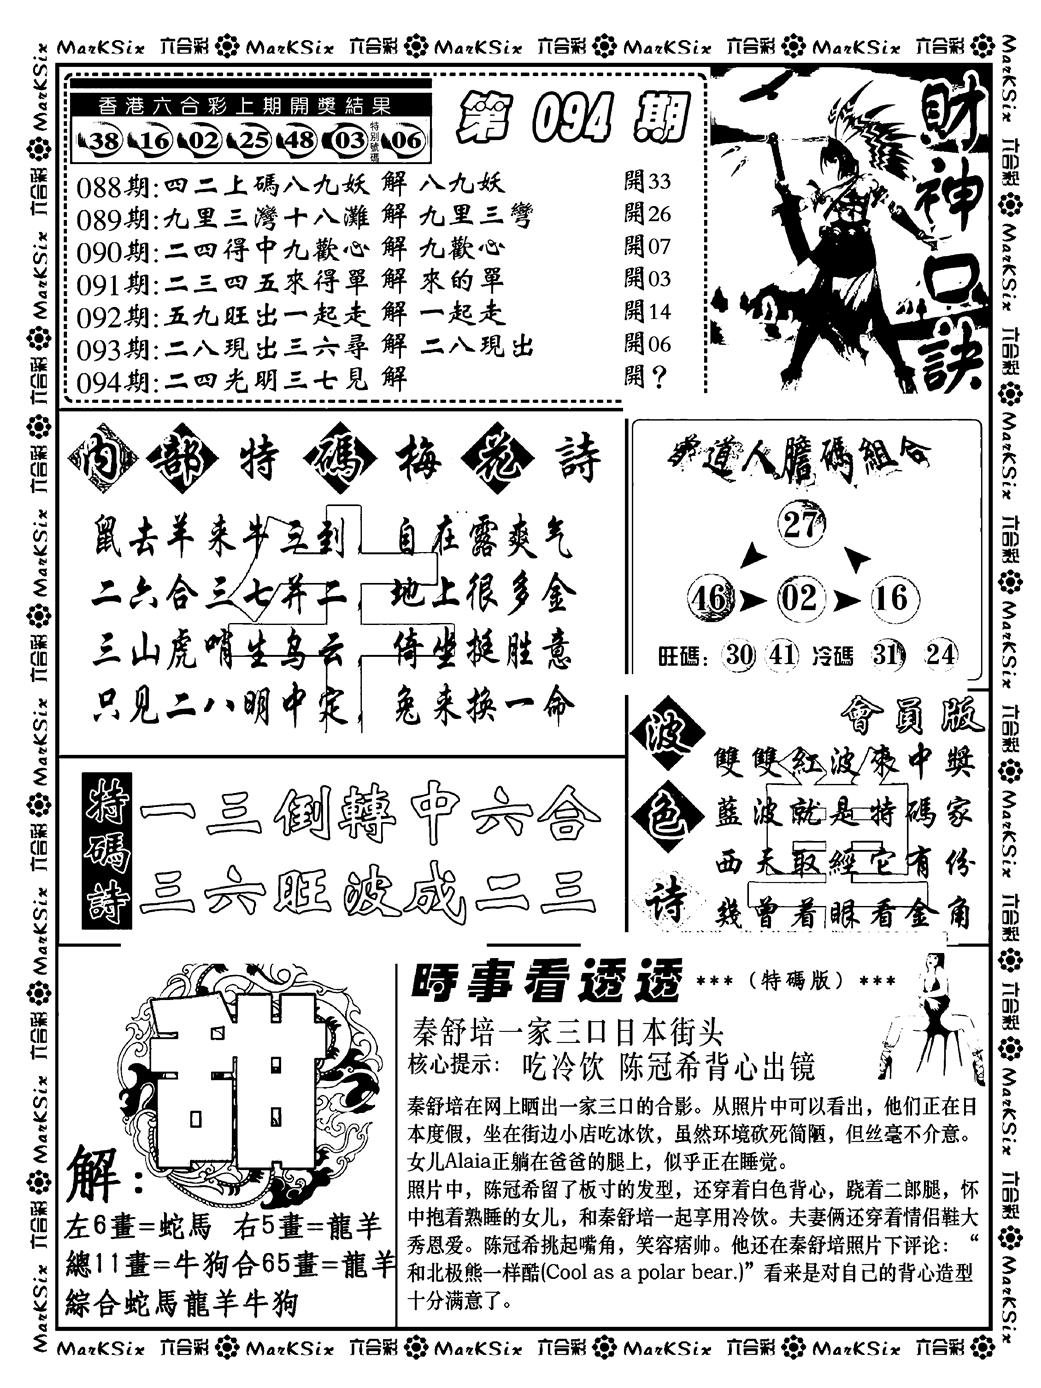 MarKSix 六合彩 MarKSix 六合彩 MarKSix 六合彩 MarKSix 六合彩 MarKSix 六合彩
香港六合彩上期開獎結果
38 16 02 25 48 03 特別號碼 06
第 094 期
財神口訣
088期:四二上碼八九妖 解 八九妖 開33
089期:九里三灣十八灘 解 九里三彎 開26
090期:二四得中九歡心 解 九歡心 開07
091期:二三四五來得單 解 來的單 開03
092期:五九旺出一起走 解 一起走 開14
093期:二八現出三六尋 解 二八現出 開06
094期:二四光明三七見 解 開?
內部特碼梅花詩
鼠去羊来牛五到,自在露爽气
二六合三七并二,地上很多金
三山虎哨生乌云,倚坐挺胜意
只见二八明中定,兔来换一命
道人膽碼組合
27
46 02 16
旺碼: 30 41 冷碼 31 24
特碼詩
一三倒轉中六合
三六旺波成二三
波色诗
會員版
雙雙紅波來中獎
藍波就是特碼家
西天取經它有份
幾曾着眼看金角
解:
左6畫=蛇馬 右5畫=龍羊
總11畫=牛狗合65畫=龍羊
綜合蛇馬龍羊牛狗
時事看透透 ***(特碼版)***
秦舒培一家三口日本街头
核心提示: 吃冷饮 陈冠希背心出镜
秦舒培在网上晒出一家三口的合影。从照片中可以看出，他们正在日
本度假，坐在街边小店吃冰饮，虽然环境砍死简陋，但丝毫不介意。
女儿Alaia正躺在爸爸的腿上，似乎正在睡觉。
照片中，陈冠希留了板寸的发型，还穿着白色背心，跷着二郎腿，怀
中抱着熟睡的女儿，和秦舒培一起享用冷饮。夫妻俩还穿着情侣鞋大
秀恩爱。陈冠希挑起嘴角，笑容痞帅。他还在秦舒培照片下评论：“
和北极熊一样酷(Cool as a polar bear.)”看来是对自己的背心造型
十分满意了。
MarKSix 六合彩 MarKSix 六合彩 MarKSix 六合彩 MarKSix 六合彩 MarKSix 六合彩